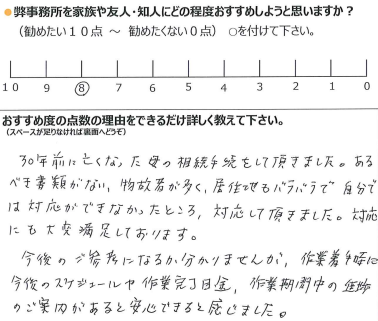 ●弊事務所を家族や友人・知人にどの程度おすすめしようと思いますか？
（勧めたい１０点 ～ 勧めたくない０点） ○を付けて下さい。
10 9 ⑧ 7 6 5 4 3 2 1 0
おすすめ度の点数の理由をできるだけ詳しく教えて下さい。
(スペースが足りなければ裏面へどうぞ)
30年前に亡くなった母の相続手続をして頂きました。ある
べき書類がない、物故者が多く、居住地もバラバラで自分で
は対応ができなかったところ、対応して頂きました。対応
にも大変満足しております。
今後のご参考になるか分かりませんが、作業着手時に
今後のスケジュールや作業完了目途、作業期間中の進捗
のご案内があると安心できると感じました。